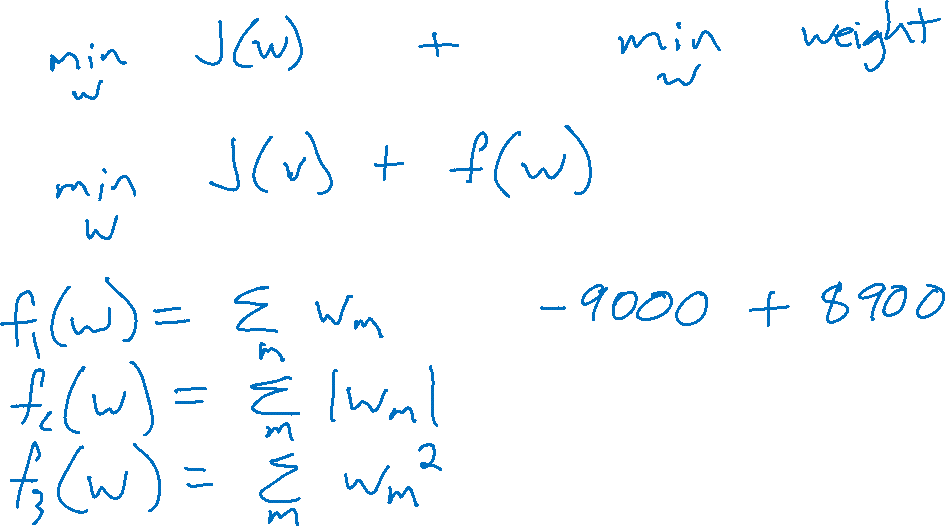 min_w J(w) + min_w weight
min_w J(v) + f(w)
f_1(w) = Σ_m w_m    -9000 + 8900
f_2(w) = Σ_m |w_m|
f_3(w) = Σ_m w_m^2